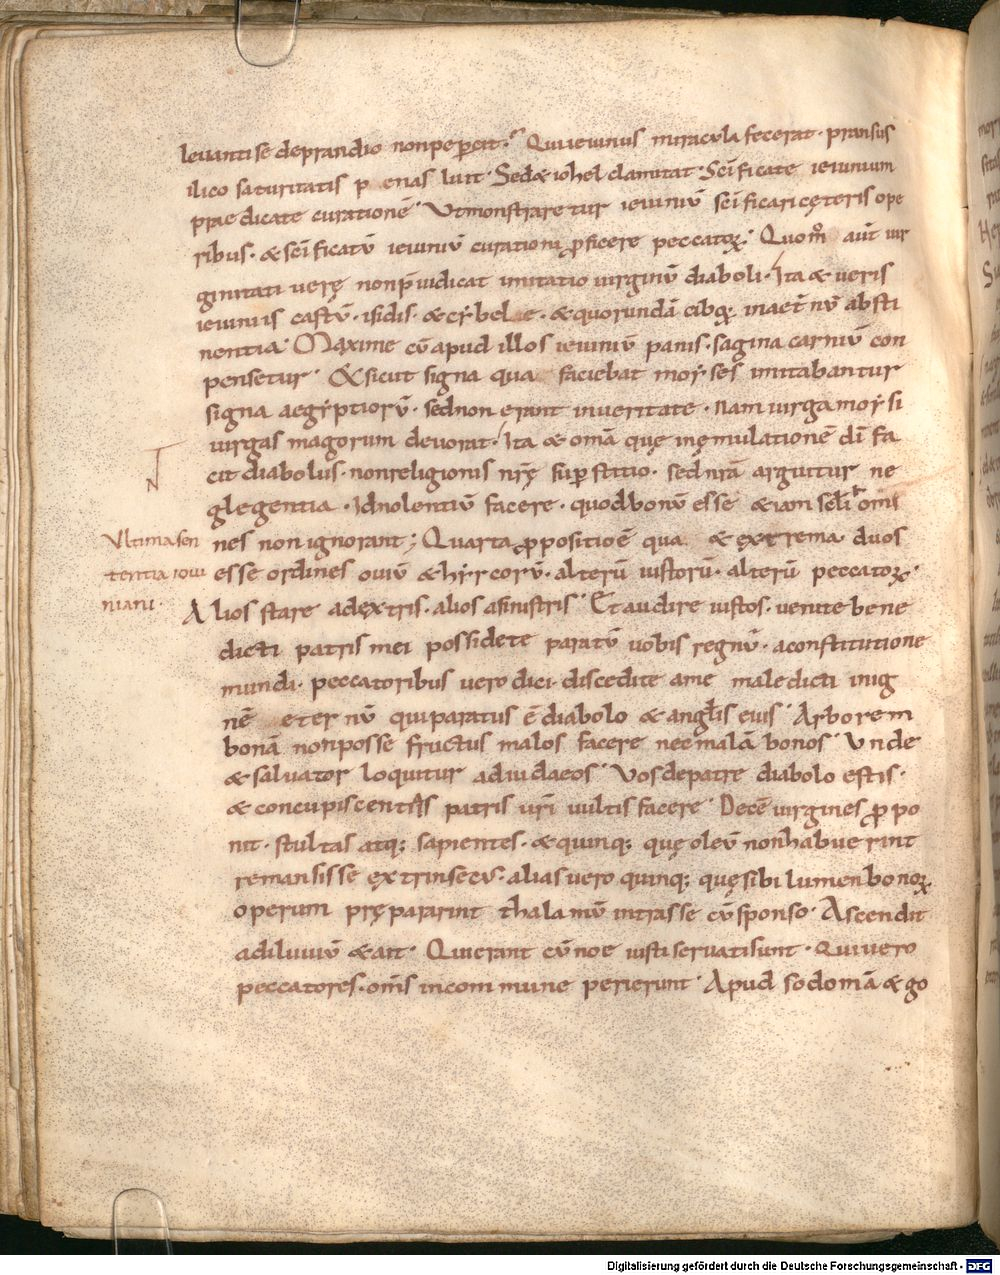 leuanti se deprandio non pepercit. Qui ieiunus miracula fecerat. pransus
ilico saturitatis p enas luit. Sed & iohel clamitat. Scīficate ieiunium
prae dicate curationē. Ut monstrare tur ieiuniū scīficari cęteris ope
ribus. & scīficatū ieiuniū curationi ꝓficere peccatoꝝ. Quom̊ aūt uir
ginitati uerę non p̄iudicat imitatio uirginū diaboli. Ita & ueris
ieiuniis castū. isidis. & cybel e. & quorundā ciboꝝ in aet̄nū absti
nentia. Maxime cū apud illos ieiuniū panis. sagina carniū con
pensetur. & sicut signa qua faciebat moyses imitabantur
signa aegyptiorū. sed non erant in ueritate. Nam uirga moysi
uirgas magorum deuorat. Ita & om̄a quę in ęmulationē dī fa
cit diabolus. non religionis nr̄ę sup stitio. sed nr̄a arguitur ne
glegentia. Id nolentiū facere. quod bonū esse etiam scl̄i om̄
Ultima sen
tentia ioui
niani.
nes non ignorant; Quarta ꝓpositio ē qua & extrema duos
esse ordines ouiū & hyrcorū. alterū iustorū. alterū peccatoꝝ.
Alios stare ad extris. alios a sinistris. Et audire iustos. uenite bene
dicti patris mei possidete paratū uobis regnū. a constitutione
mundi. peccatoribus uero dici. discedite a me maledicti in ig
nē eter nū qui paratus ē diabolo & angl̄is eius. Arborem
bonā non posse fructus malos facere nec malā bonos. Unde
& saluator loquitur ad iudaeos. Vos de patre diabolo estis.
& concupiscentiis patris ur̄i uultis facere. Decē uirgines ꝓpo
nit. stultas atq; sapientes. & quinq; quę oleū non habuerint
remansisse extrinsecus. alias uero quinq; quę sibi lumen bonoꝝ
operum pręparārint thalamū intrasse cū sponso. Ascendit
ad iluuiū & ait. Qui erant cū noe iusti seruati sunt. Qui uero
peccatores. om̄s in commune perierunt. Apud sodomā & go